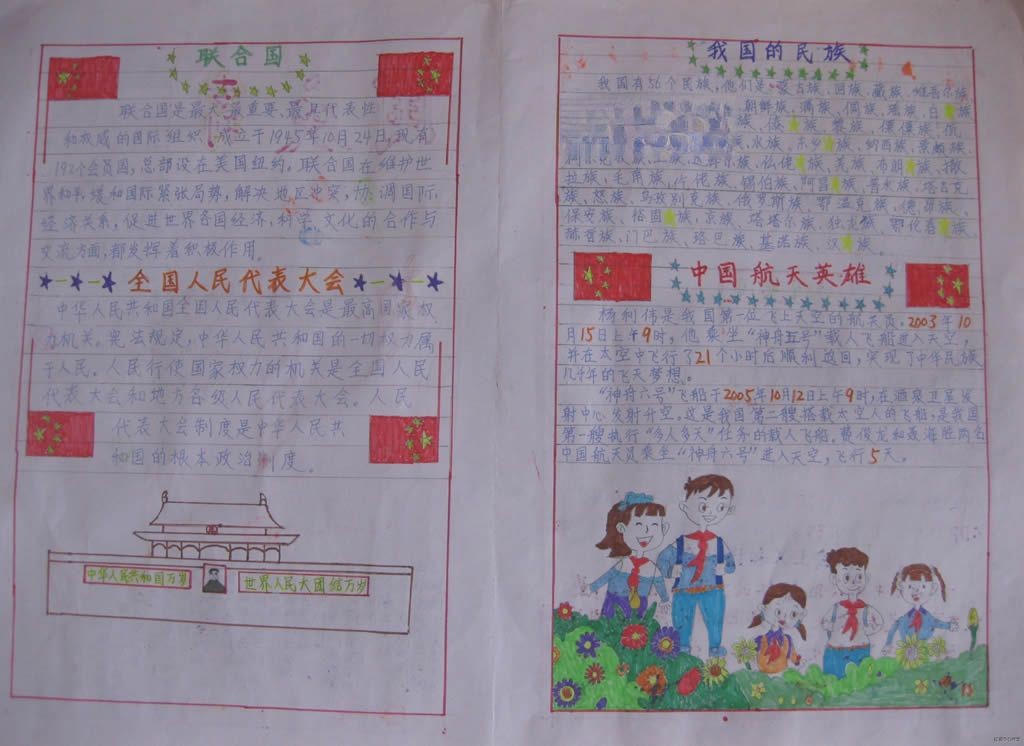 联合国
联合国是最大、最重要、最具代表性
和权威的国际组织，成立于1945年10月24日，现有
192个会员国，总部设在美国纽约。联合国在维护世
界和平，缓和国际紧张局势，解决地区冲突，协调国际
经济关系，促进世界各国经济，科学，文化的合作与
交流方面，都发挥着积极作用。
全国人民代表大会
中华人民共和国全国人民代表大会是最高国家权
力机关。宪法规定，中华人民共和国的一切权力属
于人民。人民行使国家权力的机关是全国人民
代表大会和地方各级人民代表大会。人民
代表大会制度是中华人民共
和国的根本政治制度。
中华人民共和国万岁
世界人民大团结万岁
我国的民族
我国有56个民族，他们是：蒙古族、回族、藏族、维吾尔族
朝鲜族、满族、侗族、瑶族、白族
族、傣族、黎族、傈僳族、佤
族、水族、东乡族、纳西族、景颇族、
族、土族、达斡尔族、仫佬族、羌族、布朗族、撒
拉族、毛南族、仡佬族、锡伯族、阿昌族、普米族、塔吉克
族、怒族、乌孜别克族、俄罗斯族、鄂温克族、德昂族、
保安族、裕固族、京族、塔塔尔族、独龙族、鄂伦春族、
赫哲族、门巴族、珞巴族、基诺族、汉族。
中国航天英雄
杨利伟是我国第一位飞上天空的航天员。2003年10
月15日上午9时，他乘坐“神舟五号”载人飞船进入天空，
并在太空中飞行了21个小时后顺利返回，实现了中华民族
几千年的飞天梦想。
“神舟六号”飞船于2005年10月12日上午9时，在酒泉卫星发
射中心发射升空。这是我国第二艘搭载太空人的飞船，是我国
第一艘执行“多人多天”任务的载人飞船。费俊龙和聂海胜两名
中国航天员乘坐“神舟六号”进入天空，飞行5天。